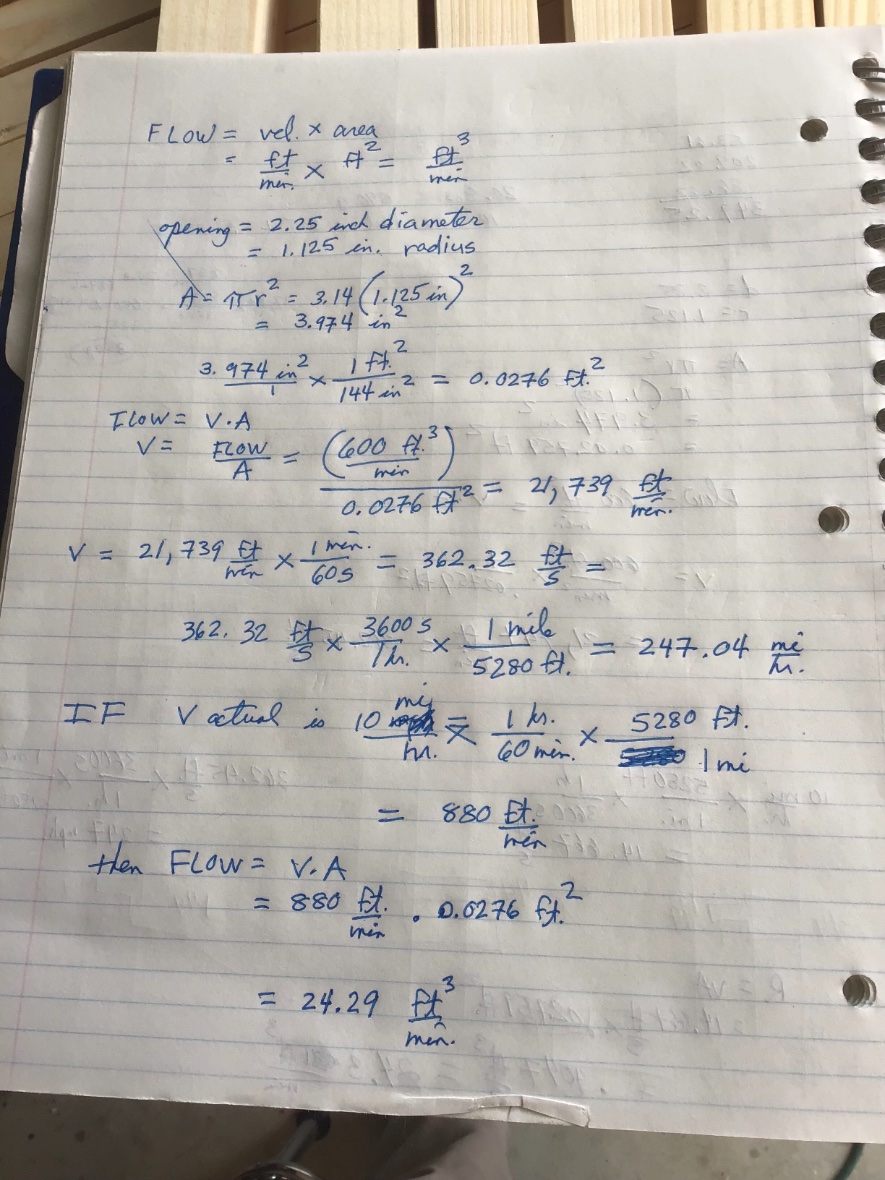 FLOW = vel. × area
= ft/min. × ft² = ft³/min
opening = 2.25 inch diameter
= 1.125 in. radius
A = πr² = 3.14 (1.125 in)²
= 3.974 in²
3.974 in²/1 × 1 ft.²/144 in² = 0.0276 ft.²
FLOW = V.A
V = FLOW/A = (600 ft.³/min)/0.0276 ft² = 21,739 ft/min.
V = 21,739 ft/min × 1 min./60 s = 362.32 ft/s =
362.32 ft/s × 3600 s/1 hr. × 1 mile/5280 ft. = 247.04 mi/hr.
IF V actual is 10 mi/hr. = × 1 hr./60 min. × 5280 ft./1 mi
= 880 ft./min
then FLOW = V.A
= 880 ft./min . 0.0276 ft.²
= 24.29 ft³/min.